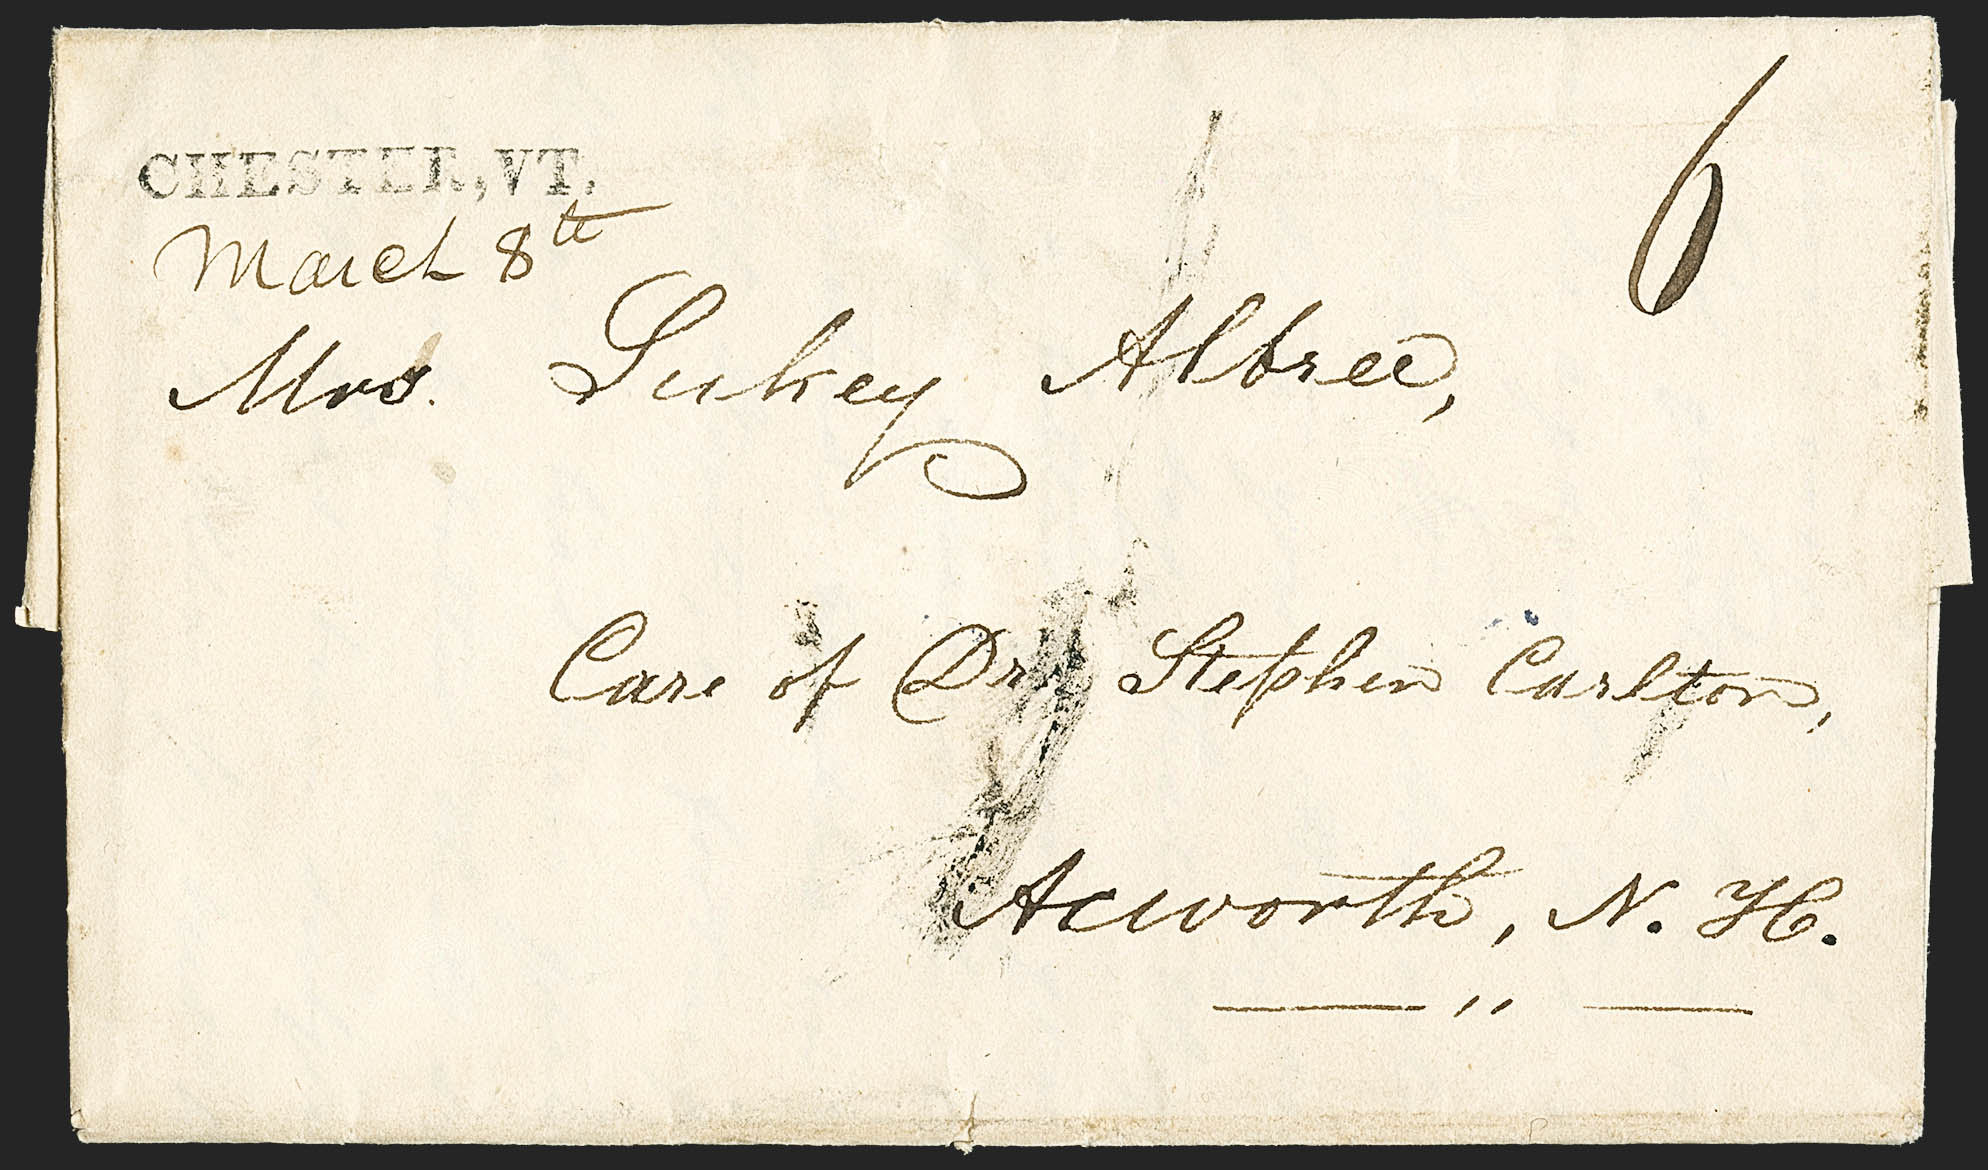 CHESTER, VT.
6
March 8th
Mrs. Sukey Albree,
Care of Dr. Stephen Carlton,
Acworth, N. H.